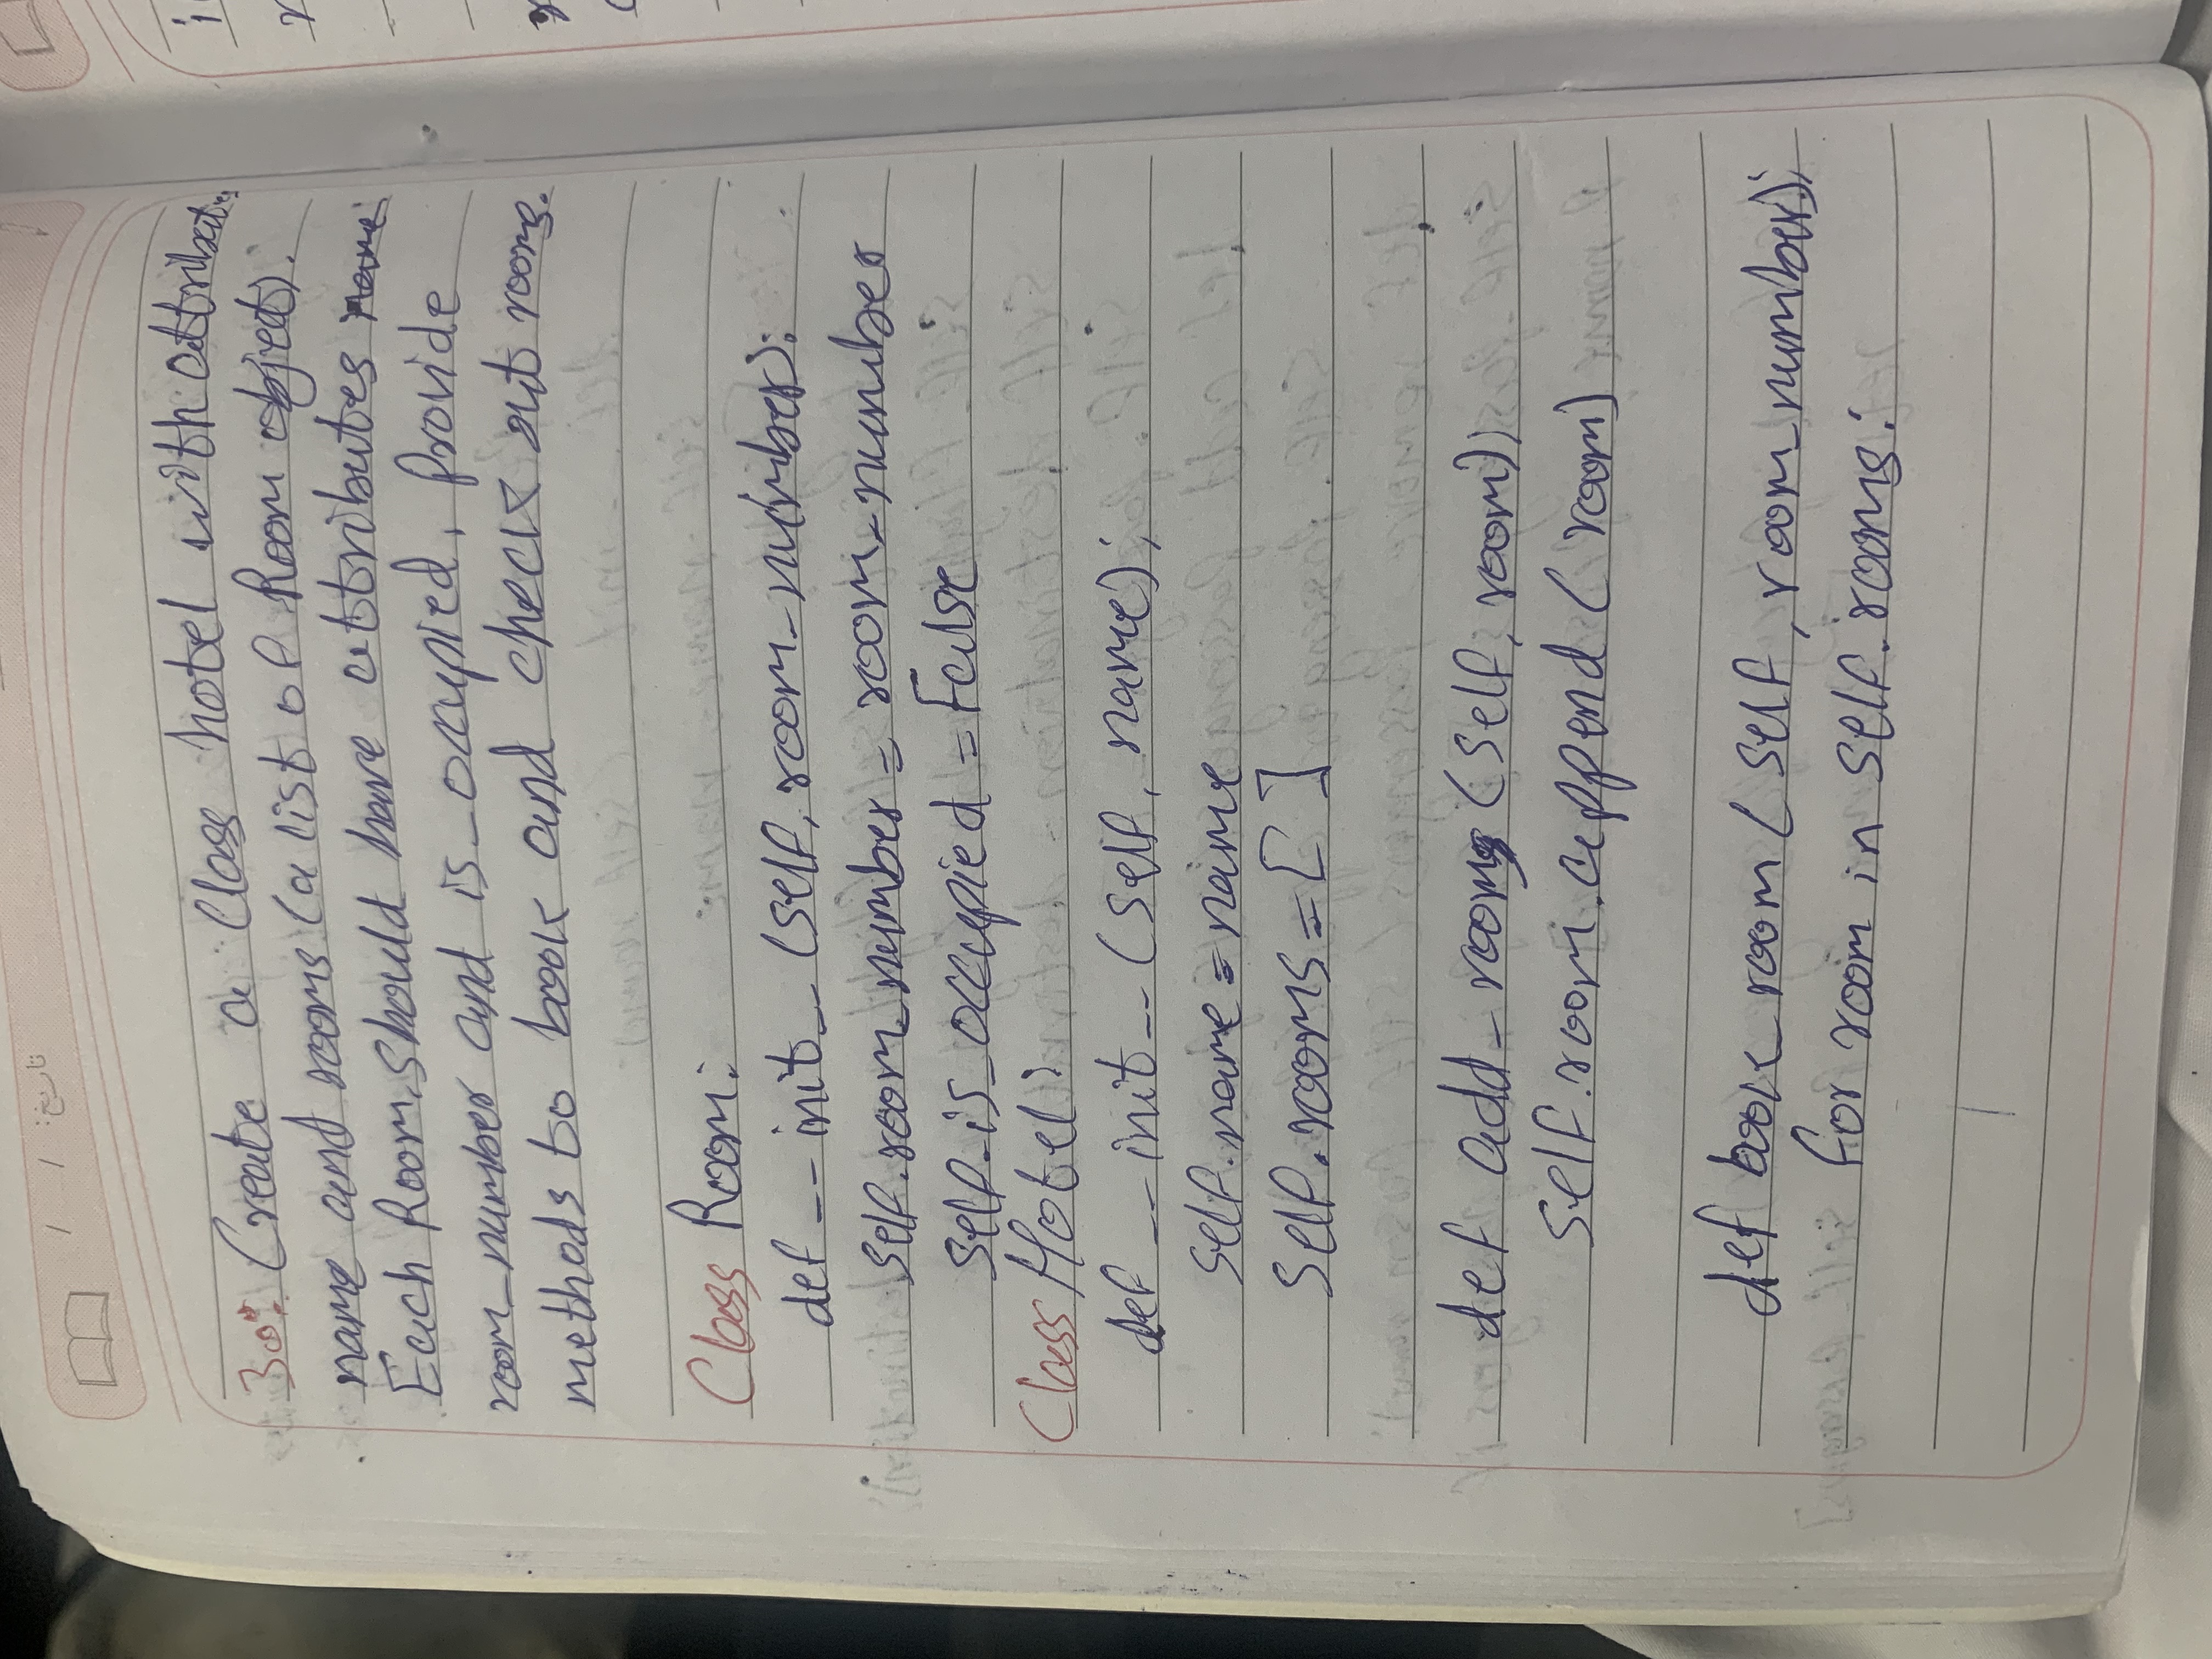 تاریخ: / /
30: Create a Class hotel with attributes
name and rooms (a list of Room object).
Each Room should have attributes name
room_number and is_occupied, Provide
methods to book and check out rooms.
Class Room:
def __init__ (self, room_number):
self.room_number = room_number
self.is_occupied = False
Class Hotel:
def __init__ (self, name);
self.name = name
self.rooms = [ ]
def add_rooms (self, room);
self.room.append (room)
def book_room (self, room_number);
for room in self.rooms: